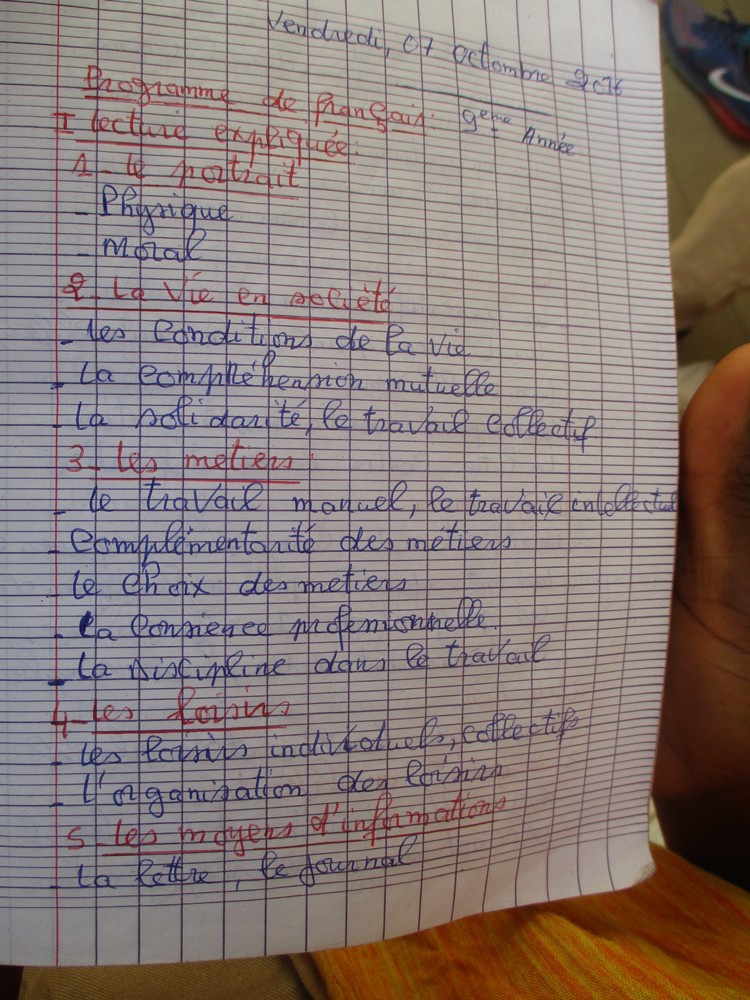 Vendredi, 07 octombre 2016
Programme de français: 9eme Année
I lecture expliquée:
1- le portrait
- Physique
- Moral
2- La Vie en société
- les conditions de la vie
- La compréhension mutuelle
- La solidarité, le travail collectif
3- Les metiers
- le travail manuel, le travail intellectuel
- Complémentarité des métiers
- le choix des metiers
- La consience professionnelle.
- La Discipline dans le travail
4- Les loisirs
- Les loisirs individuels, collectifs
- L'organisation des loisirs
5- Les moyens d'informations
- La lettre, le journal